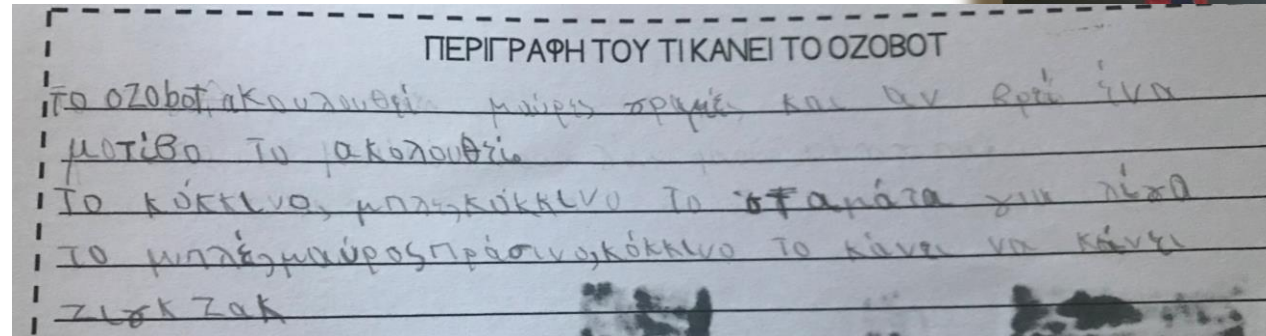 ΠΕΡΙΓΡΑΦΗ ΤΟΥ ΤΙ ΚΑΝΕΙ ΤΟ OZOBOT
ΤΟ OZObot ακουλουθεί μαύρες γραμές και αν βρεί ένα
μοτίβο το ακολουθεί.
Το κόκκινο, μπλε, κόκκινο το σταμάτα για λίγο
το μπλέ, μαύρος, πράσινο, κόκκινο το κάνει να κάνει
ζιγκ ζακ